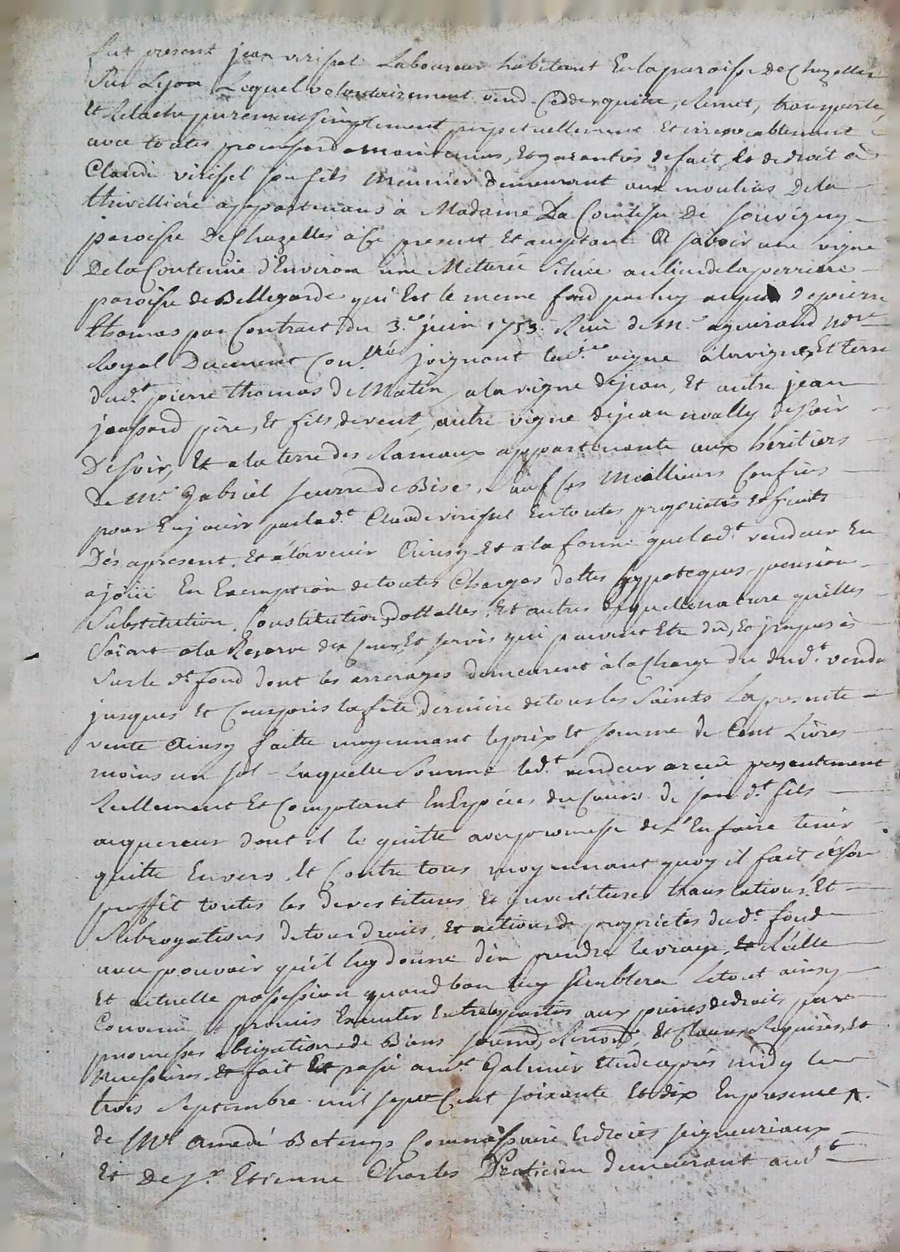 fut present jean virissel Laboureur habitant En la paroisse de Chazelles
Sur Lyon Lequel volontairement vend Cedde quitte, Remet, transporte,
Et Relache purement simplement perpetuellement Et irrevocablement
avec toutes promesses de maintenus, Et garanties de fait, Et de droit à
Claude virissel son fils Meunier demeurant aux moulins de la
thivelliere appartenans à Madame La Comtesse De Souvigny
paroisse De Chazelles a Ce present Et acceptant à savoir une vigne
De la Contenue d'Environ une Metterée Situé au lieu de la perriere
paroisse de Bellegarde qui Est le meme fond par luy acquis de pierre
thomas par Contrait du 3.e juin 1753. Reçu de Me aguiraud Nore
Royal Duement Conllé joignant lad.e vigne à la vigne, Et terre
dud.t pierre thomas de Matin, a la vigne de jean, Et autre jean
jaspard pere, Et fils de vent, autre vigne de jean noally de soir
De soir, Et a la terre des Rameaux appartenante aux heritiers
de Mr Gabriel seurre de Bise, sauf ses Meilliers Confins
pour En jouir par led.t Claude virissel En toutes proprietés Et fruits
Dès apresent, Et à l'avenir Ainsy Et a la forme que led.t vendeur En
a joüi En Exemption de toutes Charges dettes hypoteques, pension
Substitution, Constitution, dottalles, Et autres de quelle nature qu'elles
Soient a la Reserve des Cens, Et servis qui peuvent Etre dû, Et imposés
Sur le d.t fond dont les arrerages demeurent à la Charge du dud.t vendr
jusques Et Compris la fête derniere de tous les Saints La presente
vente Ainsy faitte moyennant le prix Et somme de Cent Livres
moins un sol Laquelle Somme led.t vendeur a reçu presentement
Reellement Et Comptant En Espéces du Cours de son d.t fils
acquereur dont il le quitte avec promesse de L'En faire tenir
quitte Envers, Et Contre tous moyennant quoy il fait à son
proffit toutes les devestitures, Et investitures translations, Et
Subrogations de tous droits, Et actions de proprietés dud.t fond
avec pouvoir qu'il luy donne d'en prendre la vraye, Réelle
Et actuelle possession quand bon luy semblera Le tout ainsy
Convenu Et promis Executer Entre les parties aux peines de droits par
promesses obligations de Biens soumis, Renonc. & Clauses Requises, Et
Necessaires, fait Et passé aud.t Galmier Etude après midy le
trois Septembre mil sept Cent soixante Et dix En presence
de Mr Amedé Botenys Commissaire En droits seigneuriaux
Et De Sr Etienne Charles Praticien demeurant aud.t